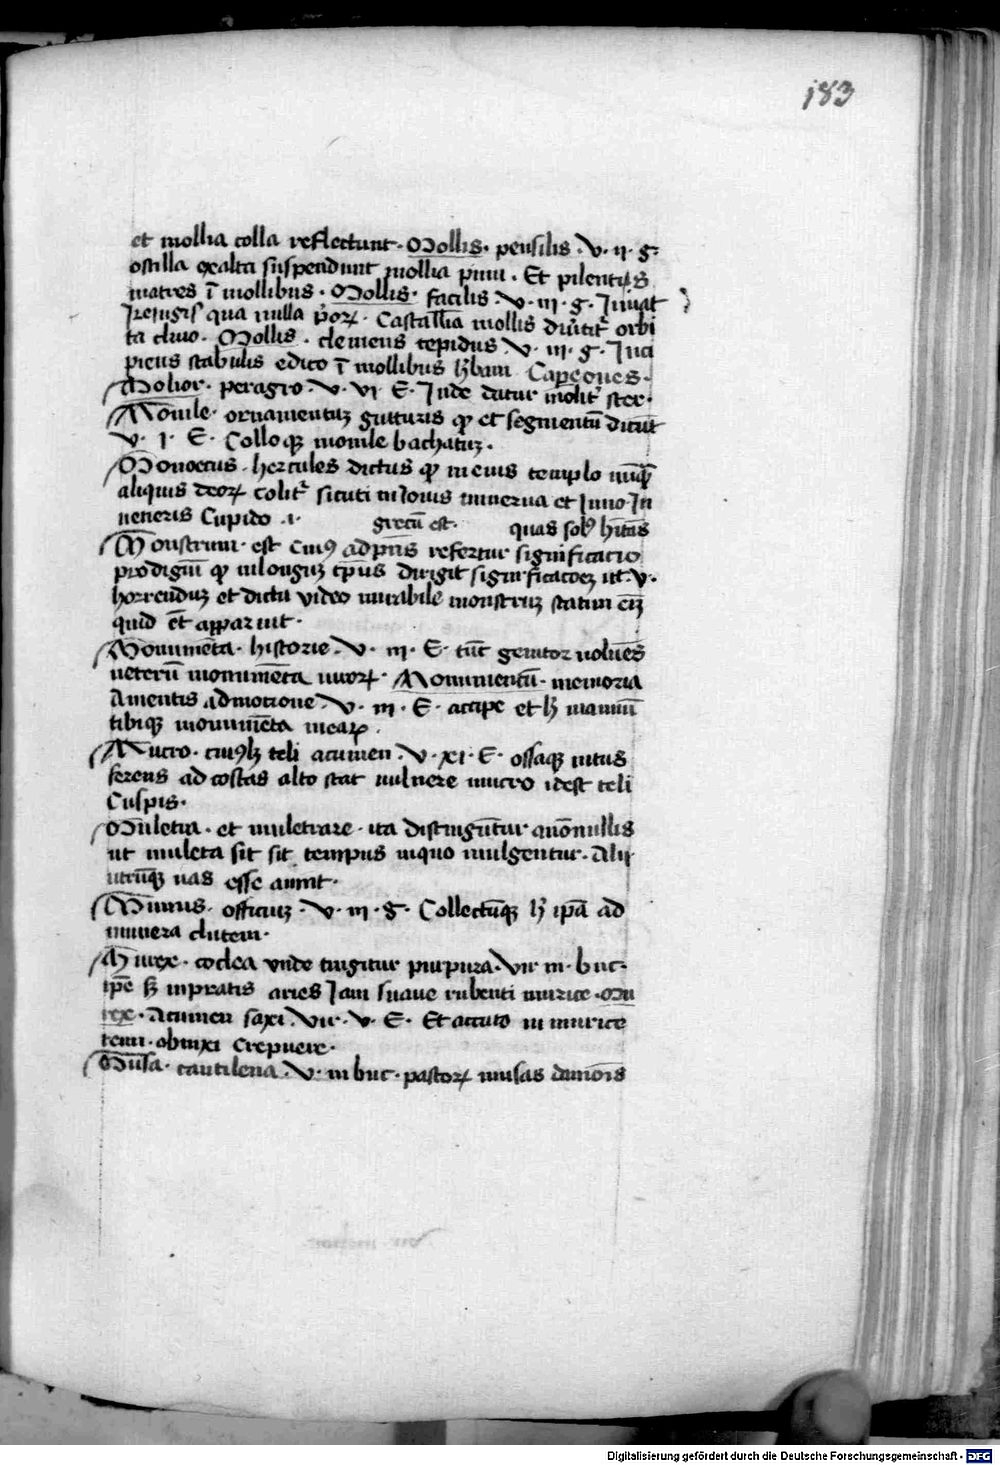 183
et mollia colla reflectunt · Mollis · pensilis · v · ii · g ·
oscilla exalta suspendunt mollia pinu · Et pilentis
matres ī mollibus · Mollis · facilis · v · iii · g · Juuat
Ire iugis qua nulla p̄orꝝ · Castaliā mollis diūtit̄ orbi
ta cliuo · Mollis · clemens tepidus · v · iii · g · Inci
piens stabulis edico ī mollibus hꝰbam Carpe oues ·
Molior · peragro · v · vi · E · Inde datur molit̄ iter ·
Monile · ornamentuꝫ gutturis qd̄ et segmentū dicūt
v · i · E · Colloqꝫ monile bachatuꝫ ·
Monoecus · hercules dictus qd̄ in eius templo nūqꝫ
aliquis deorꝝ colit̄ sicuti in Iouis minerua et Iuno · In
ueneris Cupido · i · grecū est · quas solꝰ hītās
Monstrum · est cuiꝰ adp̄n̄s refertur significatio
prodigiū qd̄ inlonguꝫ tp̄us dirigit significatōeꝫ ut · v ·
horrenduꝫ et dictu video mirabile monstruꝫ statim eīꝫ
quid ēt apparuit ·
Monumēta · historie · v · iii · E · tūc genitor uoluēs
ueterū monumēta uirorꝝ · Monumentū · memoria
Amentis admotione · v · iii · E · accipe et hꝫ manuū
tibiqꝫ monumēta mearꝝ ·
Mucro · cuiꝰlꝫ teli acumen · v · xi · E · ossaqꝫ intus
ferens ad costas alto stat uulnere mucro idest teli
Cuspis ·
Muletra · et muletrare · ita distingūtur anōnullis
ut muleta sit sit tempus inquo mulgentur · Alii
utrūqꝫ uas esse aiunt ·
Munus · officiuꝫ · v · iii · g · Collectūqꝫ hꝫ ip̄a ad
munera clutem ·
Murex · coclea unde tingitur purpura · Vir iii · buc ·
ip̄e sꝫ inpratis aries Jam suaue rubenti murice · Mu
rex · Acumen saxi · Vir · v · E · Et accuto in murice
remi · obnixi crepuere ·
Musa · cantilena · v · in buc · pastorꝝ musas damonis
Digitalisierung gefördert durch die Deutsche Forschungsgemeinschaft - DFG